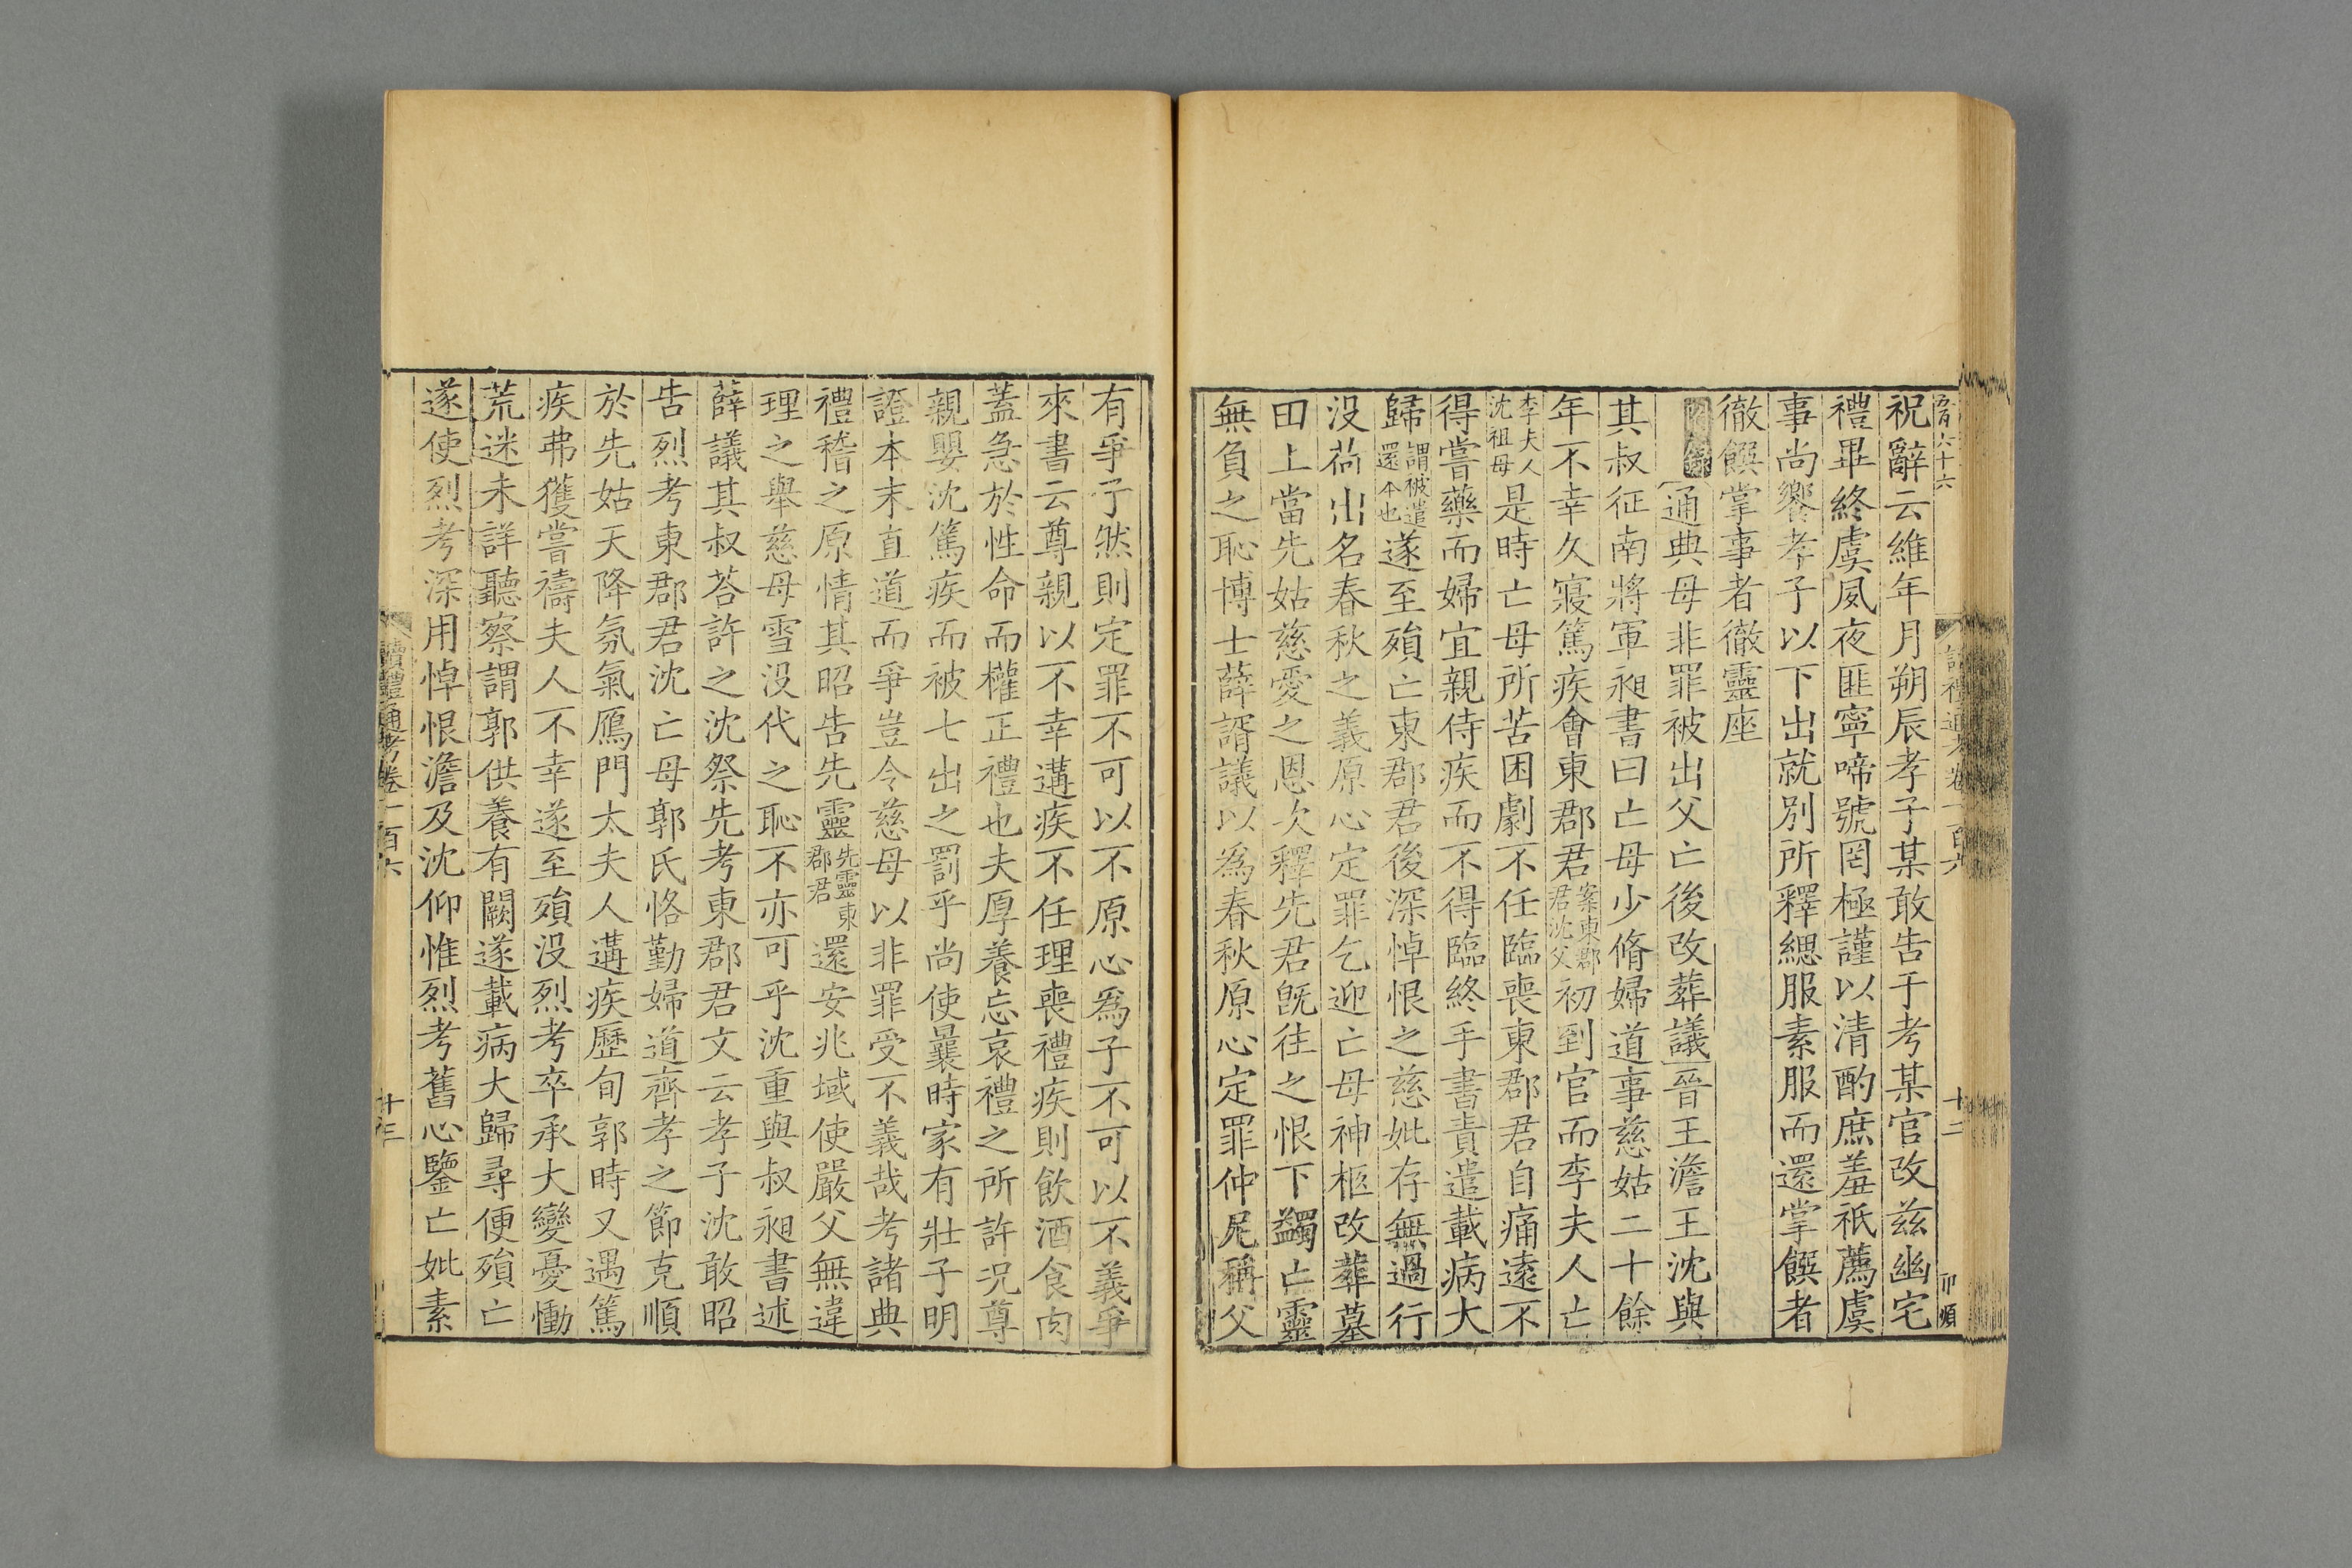 祝辭云維年月朔辰孝子某敢告于考某官改茲幽宅
禮畢終虞夙夜匪寧啼號罔極謹以清酌庶羞祇薦虞
事尚饗孝子以下出就別所釋緦服素服而還掌饌者
徹饌掌事者徹靈座
通典母非罪被出父亡後改葬議晉王澹王沈與
其叔征南將軍昶書曰亡母少脩婦道事慈姑二十餘
年不幸久寢篤疾會東郡君案東郡君沈父初到官而李夫人亡
李夫人沈祖母是時亡母所苦困劇不任臨喪東郡君自痛遠不
得嘗藥而婦宜親侍疾而不得臨終手書責遣載病大
歸謂被遣還本也遂至殞亡東郡君後深悼恨之慈妣存無過行
没荷出名春秋之義原心定罪乞迎亡母神柩改葬墓
田上當先姑慈愛之恩次釋先君旣往之恨下蠲亡靈
無負之恥博士薛諝議以爲春秋原心定罪仲尼稱父
有爭子然則定罪不可以不原心爲子不可以不義爭
來書云尊親以不幸遘疾不任理喪禮疾則飲酒食肉
蓋急於性命而權正禮也夫厚養忘哀禮之所許况尊
親嬰沈篤疾而被七出之罰乎尚使曩時家有壯子明
證本末直道而爭豈令慈母以非罪受不義哉考諸典
禮稽之原情其昭告先靈先靈東郡君還安兆域使嚴父無違
理之舉慈母雪没代之恥不亦可乎沈重與叔昶書述
薛議其叔荅許之沈祭先考東郡君文云孝子沈敢昭
告烈考東郡君沈亡母郭氏恪勤婦道齊孝之節克順
於先姑天降氛氣鴈門太夫人遘疾歷旬郭時又遇篤
疾弗獲嘗禱夫人不幸遂至殞没烈考卒承大變憂慟
荒迷未詳聽察謂郭供養有闕遂載病大歸尋便殞亡
遂使烈考深用悼恨澹及沈仰惟烈考舊心鑒亡妣素
讀禮通考卷一百六
十三